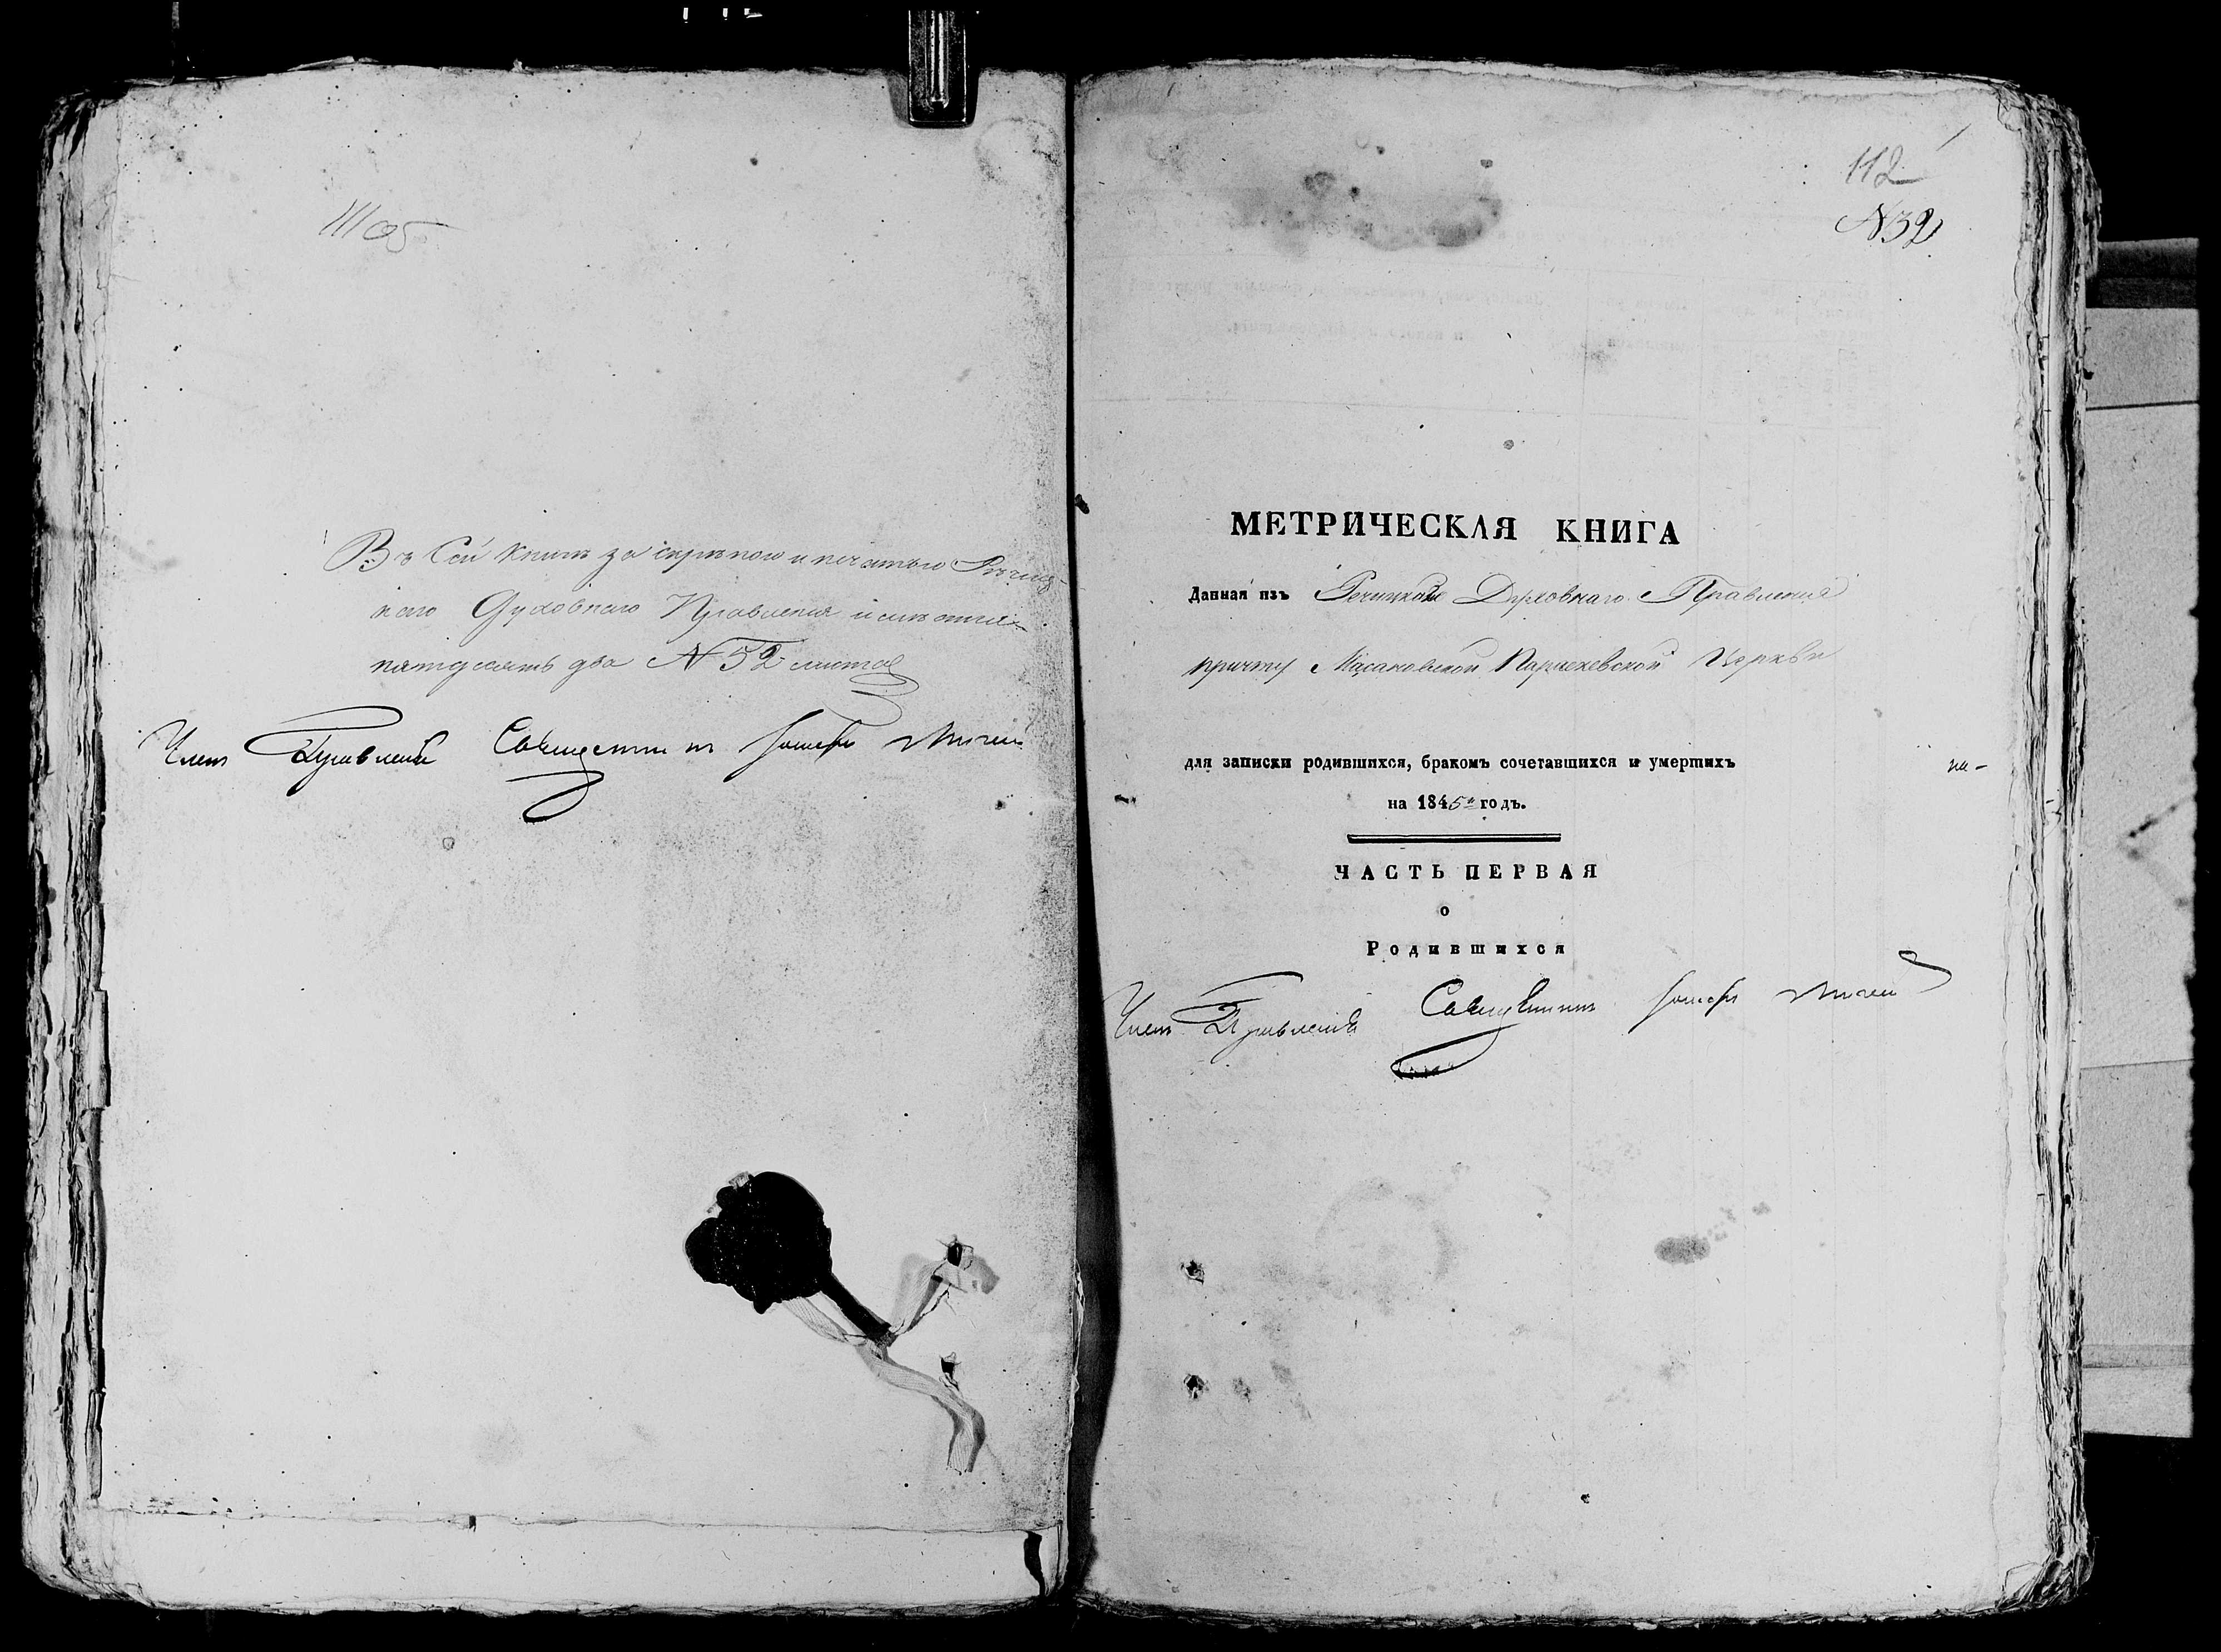 111 об
Въ Сей Книге за скрепою и печатью Речиц-
каго Духовнаго Правления
пятдесятъ два № 52 листов
Членъ Правления Священникъ
112
№32
МЕТРИЧЕСКАЯ КНИГА
Данная изъ Речицкаго Духовнаго Правления
причту Церкви
для записки родившихся, бракомъ сочетавшихся и умертихъ на-
на 1845й годъ.
ЧАСТЬ ПЕРВАЯ
о
Родившихся
Членъ Правления Священникъ